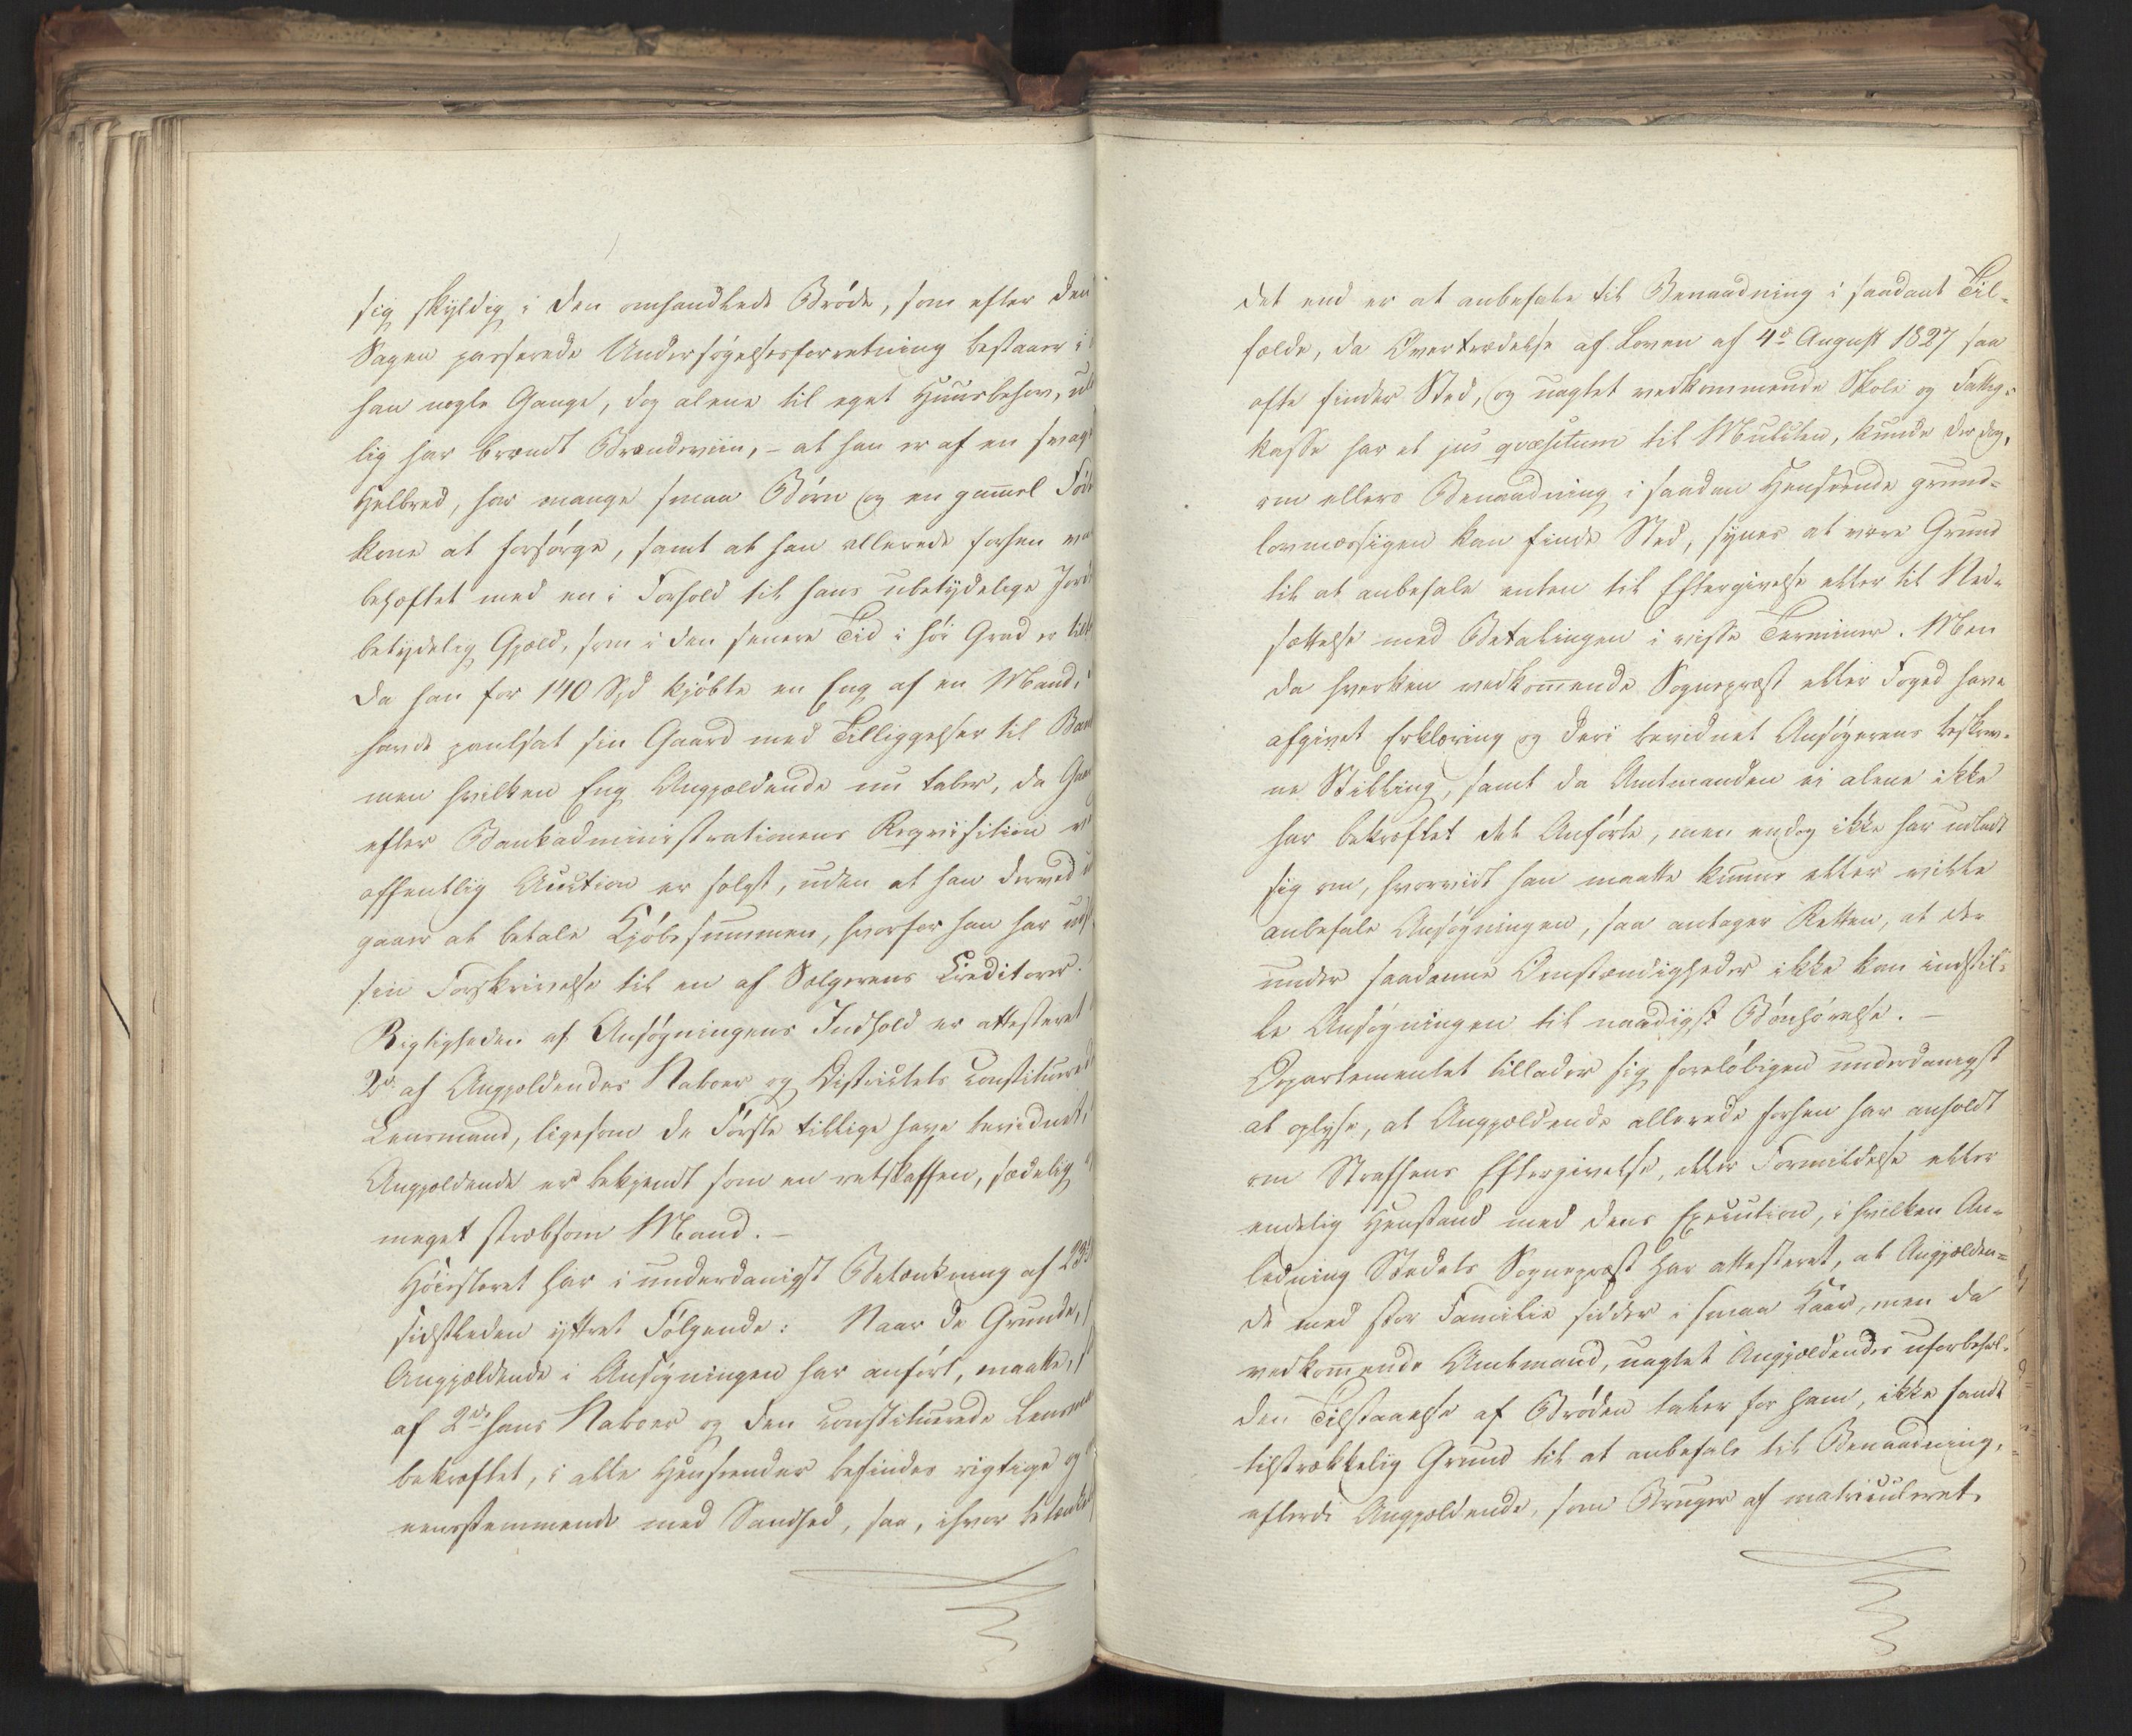 sig skyldig i den omhandlede Brøde, som efter den
Sagen passerede Undersøgelsesforretning bestaaer i
han nogle Gange, dog alene til eget Huusbehov, u
lig har brændt Brændeviin, – at han er af en svag
Helbred, har mange smaa Børn og en gammel Føde
kone at forsørge, samt at han allerede forhen var
behæftet med en i Forhold til hans ubetydelige Jord
betydelig Gjæld, som i den senere Tid i høi Grad er
da han for 140 Spd kjøbte en Eng af en Mand,
havde pantsat sin Gaard med Tilliggelser til Ban
men hvilken Eng Angjældende nu taber, da Gaar
efter Bankadministrationens Reqvisition ved
offentlig Auction er solgt, uden at han derved
gaaer at betale Kjøbesummen, hvorfor han har udst
sin Forskrivelse til en af Sælgerens Creditorer.
Rigtigheden af Ansøgningens Indhold er attesteret
2de af Angjældendes Naboer og Districtets constituered
Lensmand, ligesom de Første tillige have bevidnet,
Angjældende er bekjendt som en retskaffen, sædelig
meget stræbsom Mand. –
Høiesteret har i underdanigst Betænkning af 23d
sidstleden yttret Følgende: Naar de Grunde,
Angjældende i Ansøgningen har anført, maatte,
af 2de hans Naboer og den constituerede Lensman
bekræftet, i alle Henseender befindes rigtige og
eensstemmende med Sandhed, saa, ihvor betænke
det end er at anbefale til Benaadning i saadant Til-
fælde, da Overtrædelse af Loven af 4de August 1827 saa
ofte finder Sted, og uagtet vedkommende Skole og Fattig-
kasse har et jus qvæsitum til Mulcten, kunde der dog,
om ellers Benaadning i saadan Henseende grund-
lovmæssigen kan finde Sted, synes at være Grund
til at anbefale enten til Eftergivelse eller til Ned-
sættelse med Betalingen i visse Terminer. Men
da hverken vedkommende Sognepræst eller Foged have
afgivet Erklæring og deri bevidnet Ansøgerens beskrev-
ne Stilling, samt da Amtmanden ei alene ikke
har bekræftet det Anførte, men endog ikke har udladt
sig om, hvorvidt han maatte kunne eller ville
anbefale Ansøgningen, saa antager Retten, at der
under saadanne Omstændigheder ikke kan indstil-
le Ansøgningen til naadigst Bønhørelse. –
Departementet tillader sig foreløbigen underdanigst
at oplyse, at Angjældende allerede forhen har anholdt
om Straffens Eftergivelse, eller Formildelse eller
endelig Henstand med dens Execution, i hvilken An-
ledning Stedets Sognepræst har attesteret, at Angjælden-
de med stor Familie sidder i smaa Kaar, men da
vedkommende Amtmand, uagtet Angjældendes uforbehol-
den Tilstaaelse af Brøden taler for ham, ikke fandt
tilstrækkelig Grund til at anbefale til Benaadning,
efterdi Angjældende, som Bruger af matriculeret